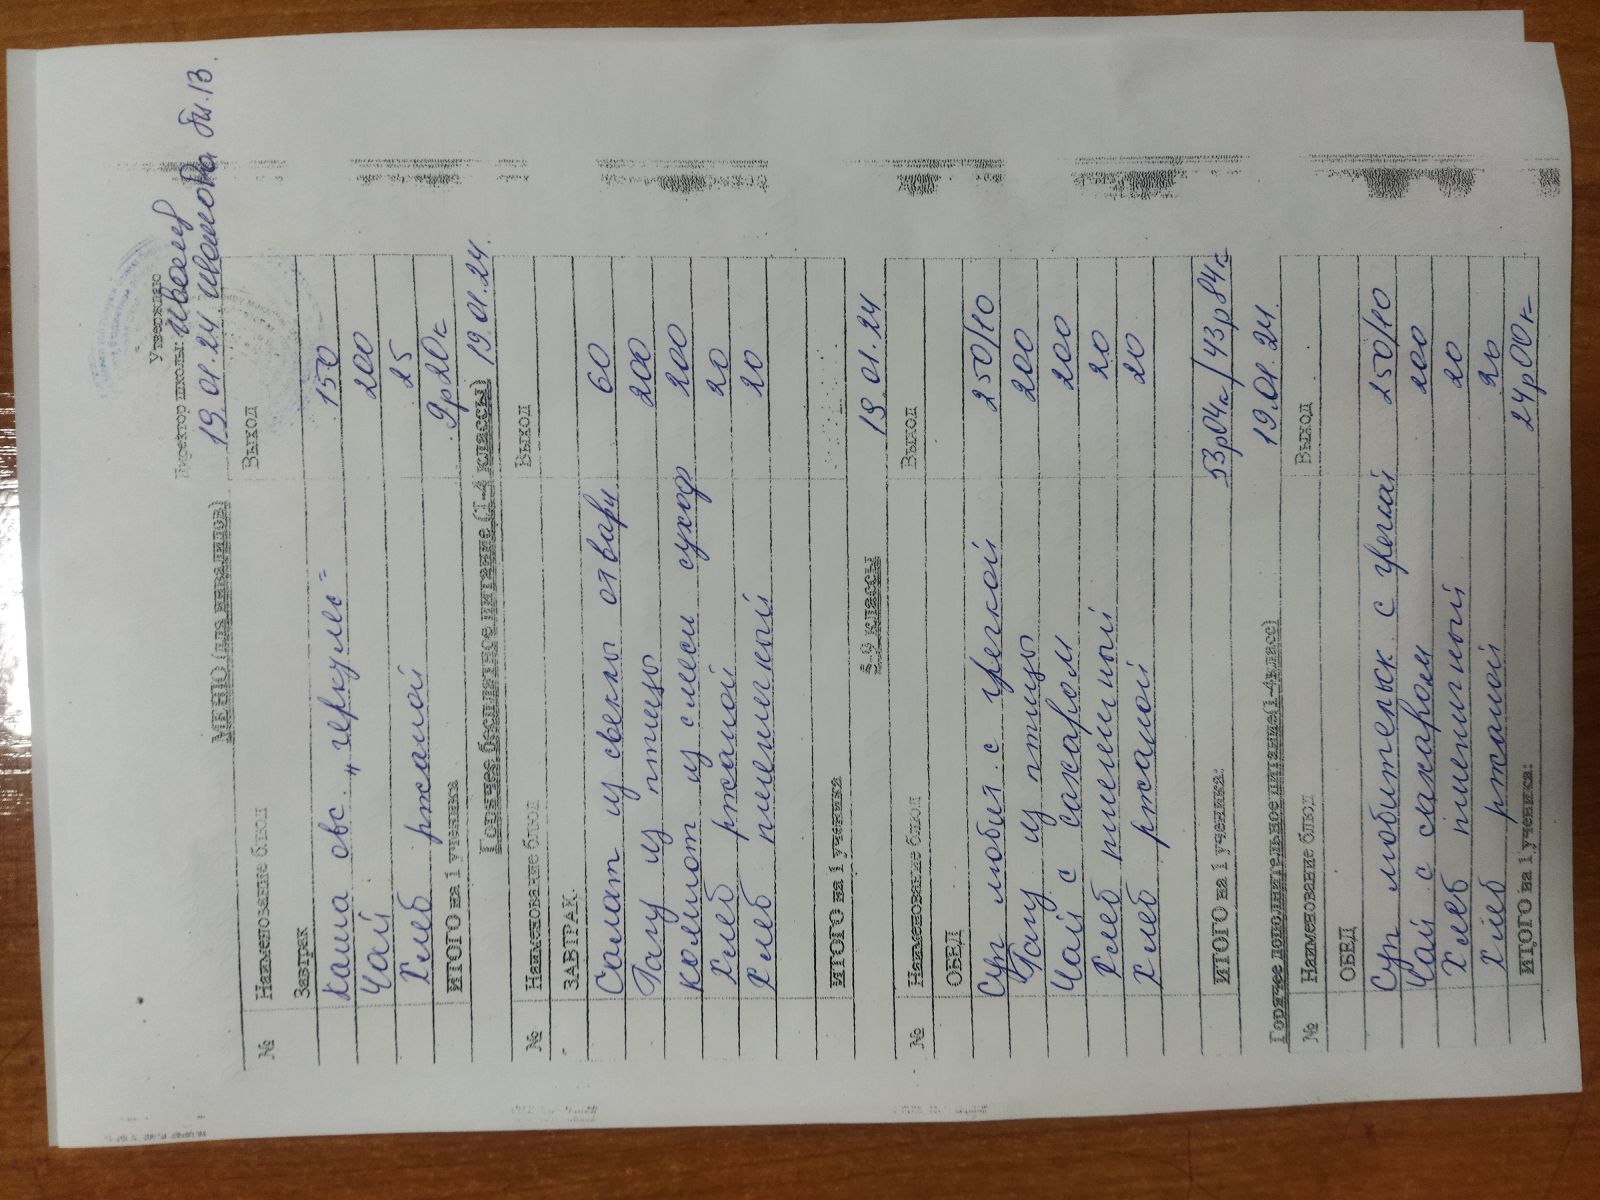 Утверждаю
Директор школы:
19.01.24 Иванова Вл. В.
МЕНЮ (для инвалидов)
№ Наименование блюд Выход
Завтрак
Каша овс. „геркулес" 150
Чай 200
Хлеб ржаной 25
ИТОГО на 1 ученика 9р20к
Горячее бесплатное питание (1-4 классы) 19.01.24.
№ Наименование блюд Выход
ЗАВТРАК
Салат из свеклы отварн 60
Рагу из птицы 200
Компот из смеси сухоф 200
Хлеб ржаной 20
Хлеб пшеничный 20
ИТОГО на 1 ученика
5-9 классы 19.01.24
№ Наименование блюд Выход
ОБЕД
Суп любит. с гречкой 250/10
Рагу из птицы 200
Чай с сахаром 200
Хлеб пшеничный 20
Хлеб ржаной 20
ИТОГО на 1 ученика: 53р04к/43р84к
Горячее дополнительное питание(1-4класс) 19.01.24
№ Наименование блюд Выход
ОБЕД
Суп любительск с гречкой 250/10
Чай с сахаром 200
Хлеб пшеничный 20
Хлеб ржаной 20
ИТОГО на 1 ученика: 24р00к